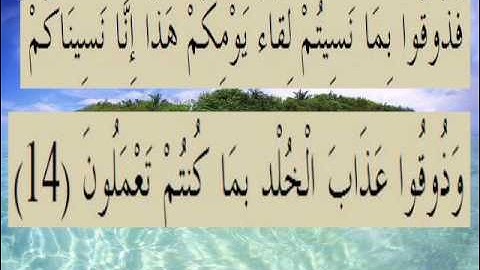 فَذُوقُوا بِمَا نَسِيتُمْ لِقَاءَ يَوْمِكُمْ هَذَا إِنَّا نَسِينَاكُمْ
وَذُوقُوا عَذَابَ الْخُلْدِ بِمَا كُنتُمْ تَعْمَلُونَ (14)